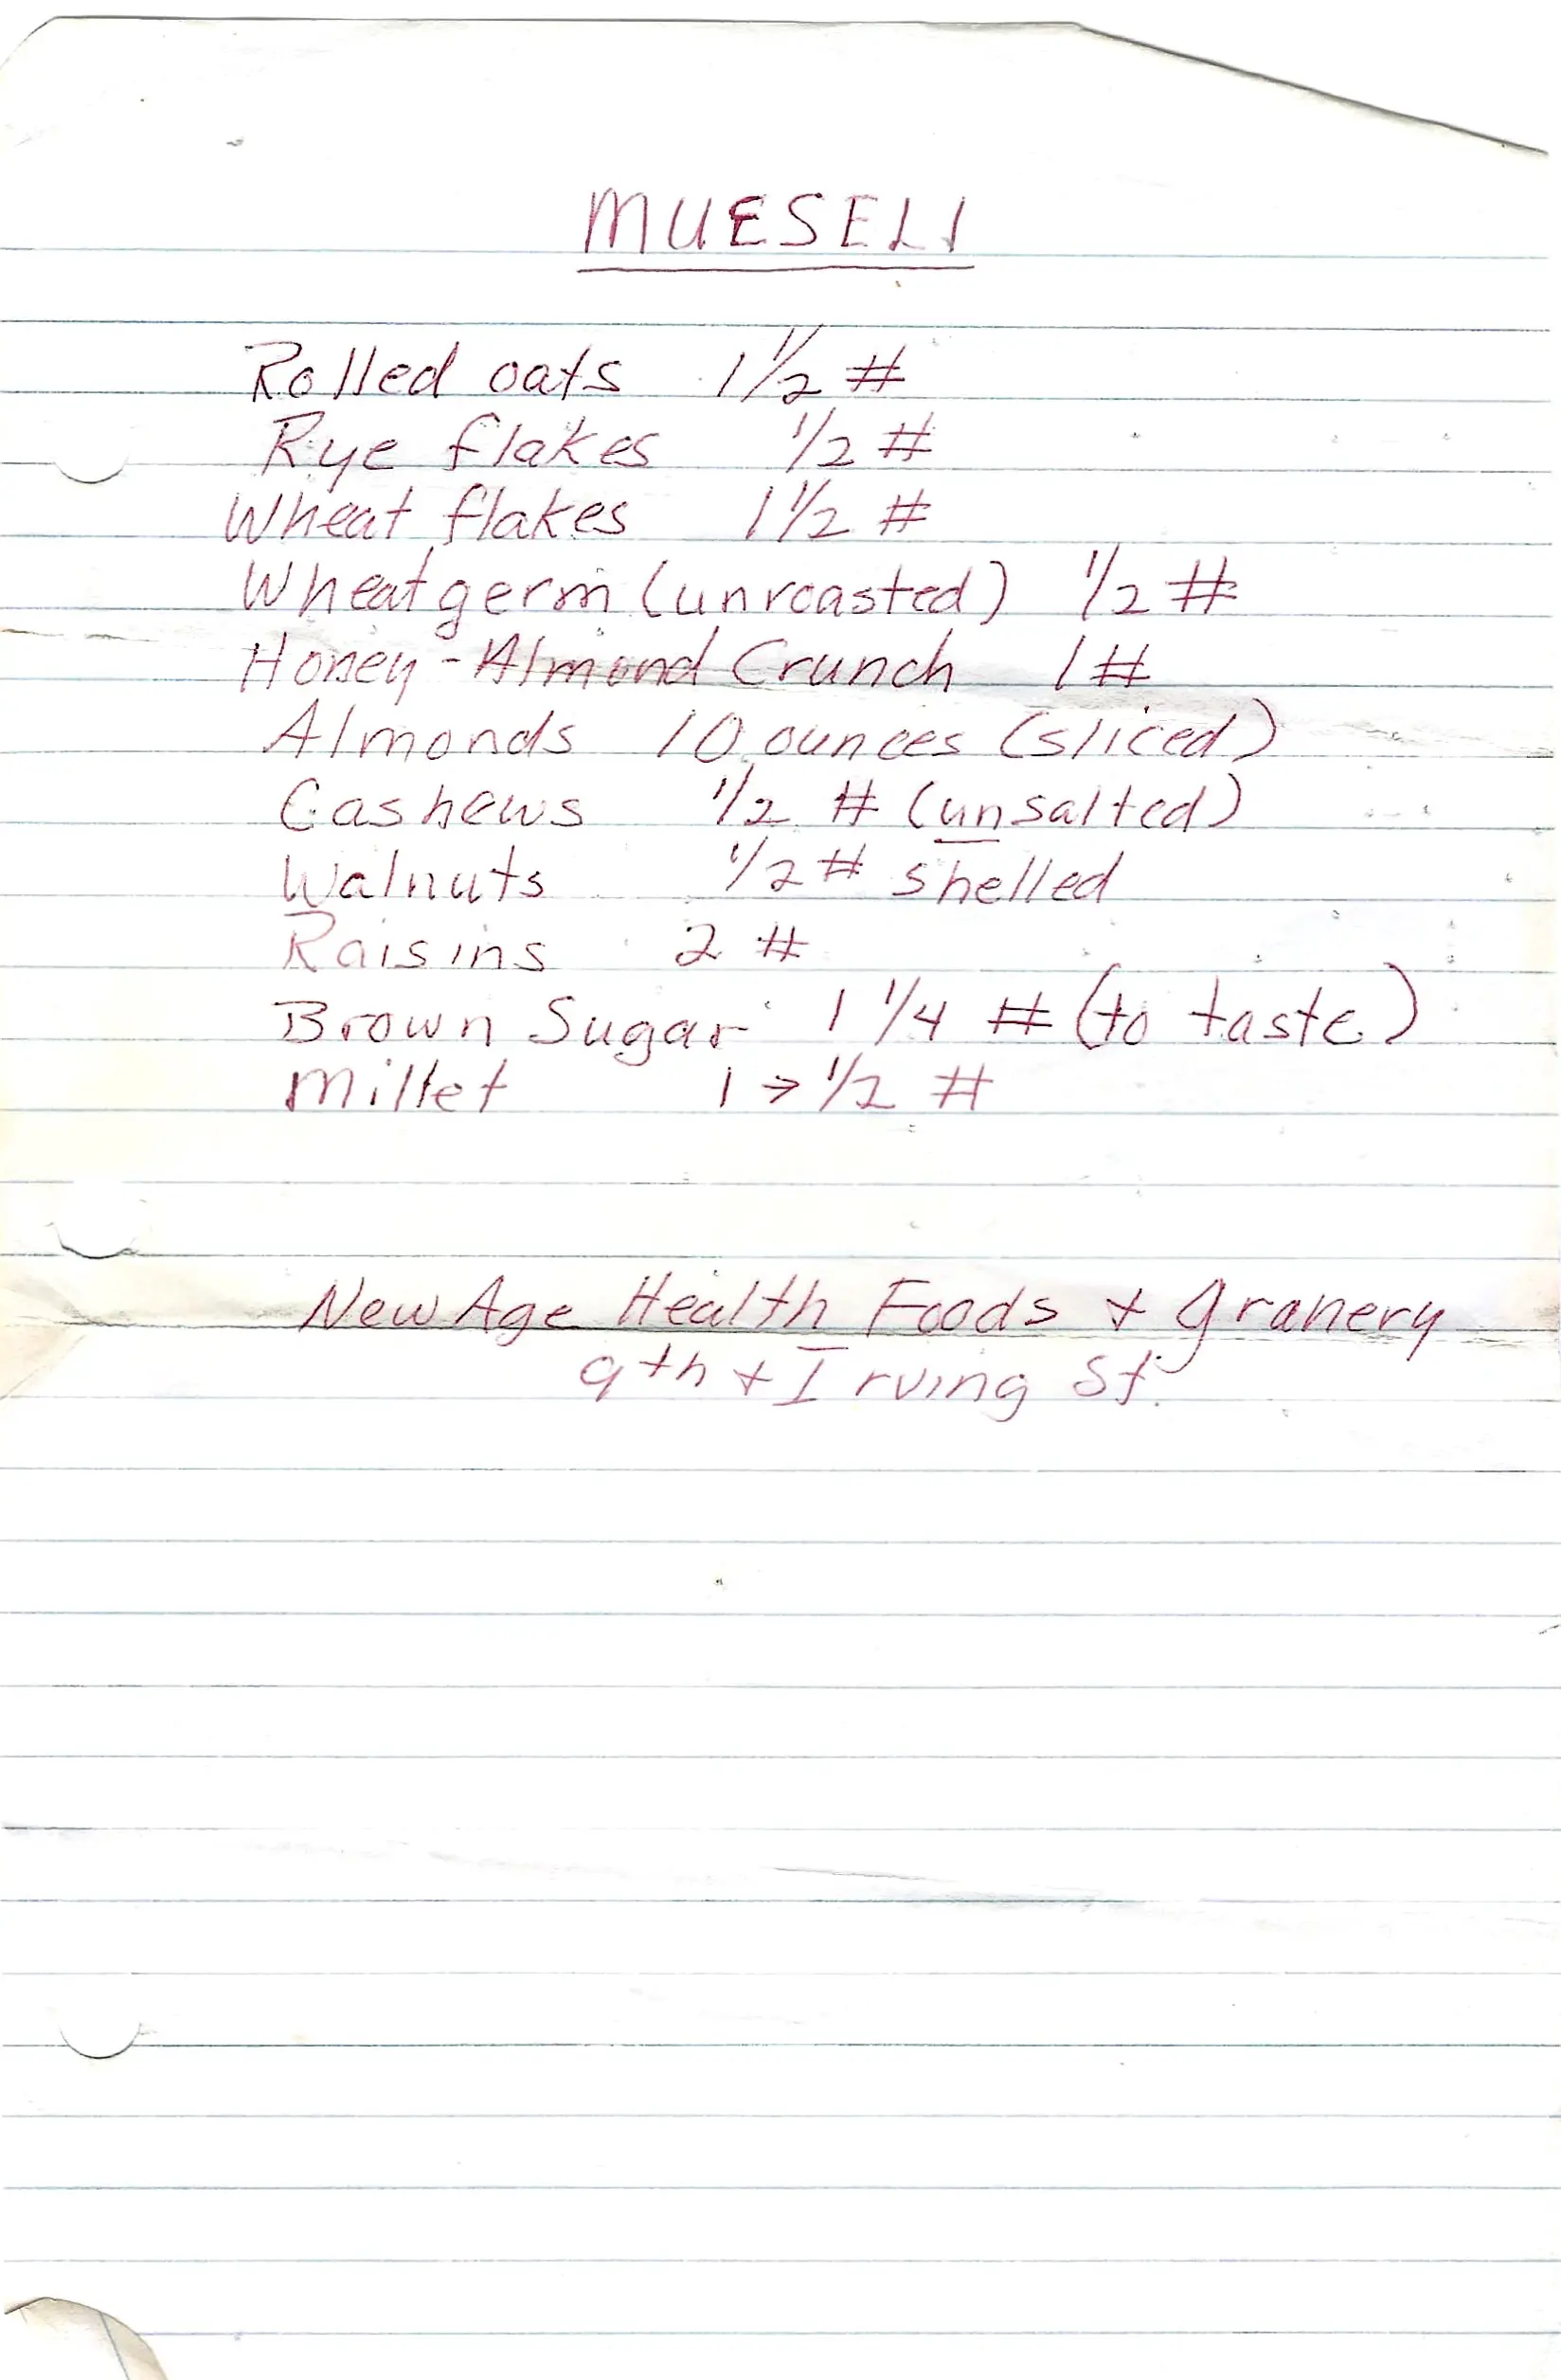 MUESELI
Rolled oats 1 1/2 #
Rye flakes 1/2 #
Wheat flakes 1 1/2 #
Wheat germ (unroasted) 1/2 #
Honey-Almond Crunch 1 #
Almonds 10 ounces (sliced)
Cashews 1/2 # (unsalted)
Walnuts 1/2 # shelled
Raisins 2 #
Brown Sugar 1 1/4 # (to taste)
Millet 1 → 1/2 #
New Age Health Foods & Granery
9th & Irving St.